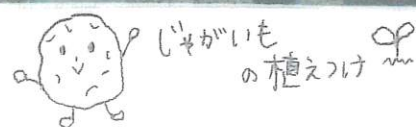 じゃがいも
の植えつけ